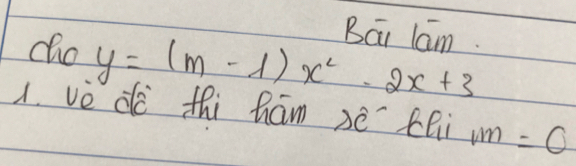 Bài làm.
Cho y = (m - 1) x² - 2x + 3
1. Vẽ đồ thị hàm số khi m = 0